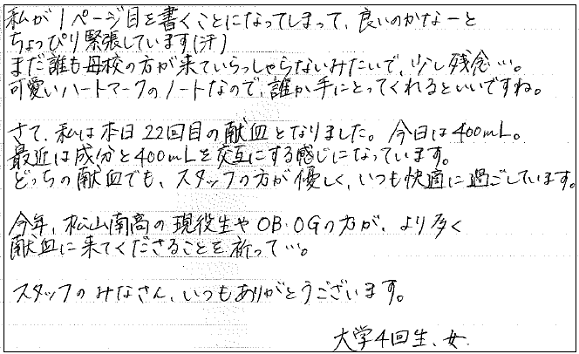 私が1ページ目を書くことになってしまって、良いのかなーと
ちょっぴり緊張しています(汗)
まだ誰も母校の方が来ていらっしゃらないみたいで、少し残念…。
可愛いハートマークのノートなので、誰か手にとってくれるといいですね。
さて、私は本日22回目の献血となりました。今日は400mL。
最近は成分と400mLを交互にする感じになっています。
どっちの献血でも、スタッフの方が優しく、いつも快適に過ごしています。
今年、松山南高の現役生やOB・OGの方が、より多く
献血に来てくださることを祈って…。
スタッフのみなさん、いつもありがとうございます。
大学4回生、女